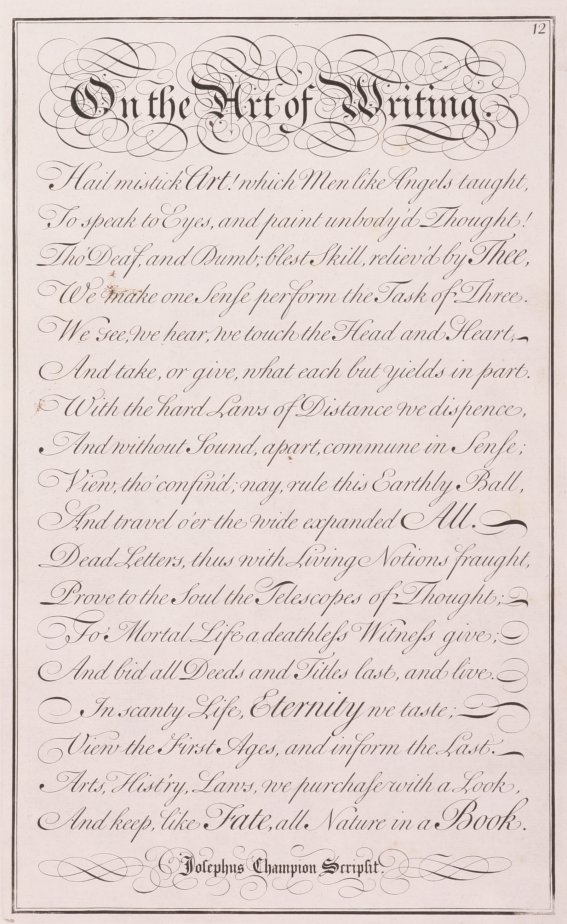 12
On the Art of Writing.
Hail mistick Art! which Men like Angels taught,
To speak to Eyes, and paint unbody'd Thought!
Tho' Deaf, and Dumb; blest Skill, reliev'd by Thee,
We make one Senſe perform the Task of Three.
We see, we hear, we touch the Head and Heart,
And take, or give, what each but yields in part.
With the hard Laws of Distance we dispence,
And without Sound, apart, commune in Senſe;
View, tho' confin'd; nay, rule this Earthly Ball,
And travel o'er the wide expanded All.
Dead Letters, thus with Living Notions fraught,
Prove to the Soul the Telescopes of Thought;
To Mortal Life a deathleſs Witneſs give;
And bid all Deeds and Titles last, and live.
In scanty Life, Eternity we taste;
View the First Ages, and inform the Last.
Arts, Hist'ry, Laws, we purchaſe with a Look,
And keep, like Fate, all Nature in a Book.
Joſephus Champion Scripſit.